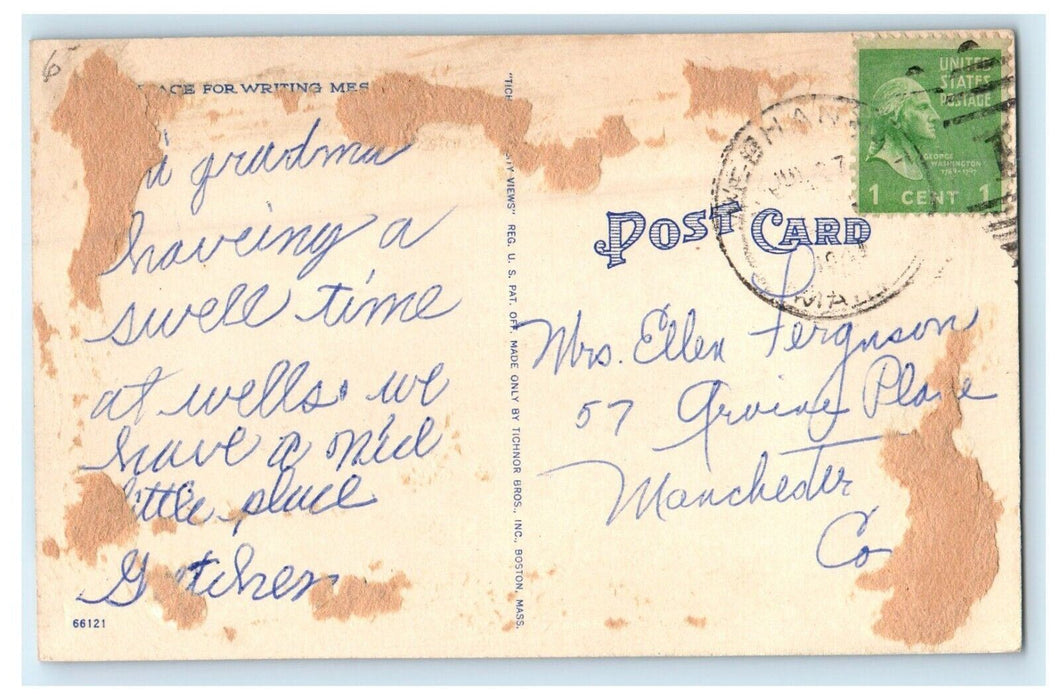 6
ACE FOR WRITING MES
gradma
haveing a
swell time
at wells. we
have a nice
little place
"TICH
ITY VIEWS" REG. U. S. PAT. OFF. MADE ONLY BY TICHNOR BROS., INC., BOSTON, MASS.
66121
UNITED
STATES
POSTAGE
GEORGE
WASHINGTON
1 CENT 1
MAI
POST CARD
Mrs. Ellen Ferguson
57 Place
Manchester
Co